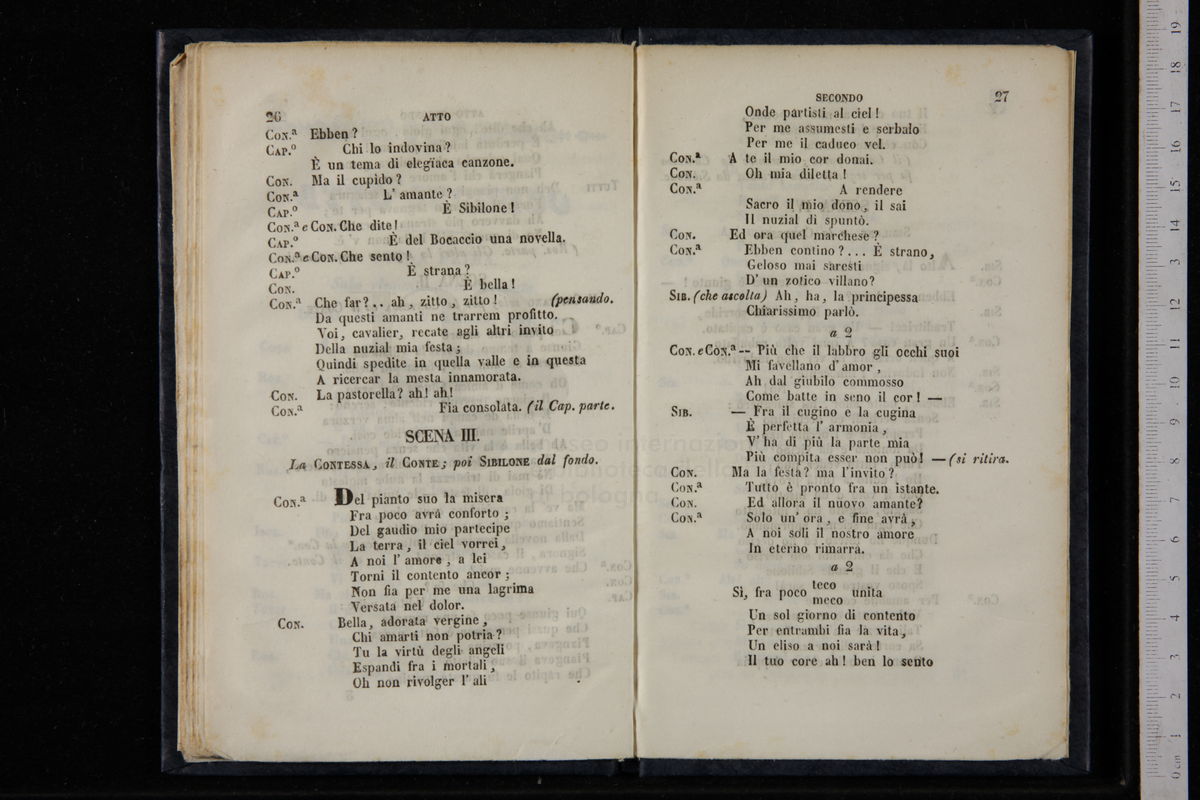 26 ATTO
Con.a Ebben?
Cap.o Chi lo indovina?
È un tema di elegïaca canzone.
Con. Ma il cupido?
Con.a L' amante?
Cap.o È Sibilone!
Con.a e Con. Che dite!
Cap.o È del Bocaccio una novella.
Con.a e Con. Che sento!
Cap.o È strana?
Con. È bella!
Con.a Che far?.. ah, zitto, zitto! (pensando.
Da questi amanti ne trarrem profitto.
Voi, cavalier, recate agli altri invito
Della nuzial mia festa;
Quindi spedite in quella valle e in questa
A ricercar la mesta innamorata.
Con. La pastorella? ah! ah!
Con.a Fia consolata. (il Cap. parte.
SCENA III.
La Contessa, il Conte; poi Sibilone dal fondo.
Con.a Del pianto suo la misera
Fra poco avrà conforto;
Del gaudio mio partecipe
La terra, il ciel vorrei,
A noi l' amore, a lei
Torni il contento ancor;
Non fia per me una lagrima
Versata nel dolor.
Con. Bella, adorata vergine,
Chi amarti non potria?
Tu la virtù degli angeli
Espandi fra i mortali,
Oh non rivolger l' ali
SECONDO 27
Onde partisti al ciel!
Per me assumesti e serbalo
Per me il caduco vel.
Con.a A te il mio cor donai.
Con. Oh mia diletta!
Con.a A rendere
Sacro il mio dono, il sai
Il nuzial dì spuntò.
Con. Ed ora quel marchese?
Con.a Ebben contino?... È strano,
Geloso mai saresti
D' un zotico villano?
Sib. (che ascolta) Ah, ha, la principessa
Chiarissimo parlò.
a 2
Con. e Con.a -- Più che il labbro gli occhi suoi
Mi favellano d' amor,
Ah dal giubilo commosso
Come batte in seno il cor! —
Sib. — Fra il cugino e la cugina
È perfetta l' armonia,
V' ha di più la parte mia
Più compita esser non può! — (si ritira.
Con. Ma la festa? ma l'invito?
Con.a Tutto è pronto fra un istante.
Con. Ed allora il nuovo amante?
Con.a Solo un' ora, e fine avrà,
A noi soli il nostro amore
In eterno rimarrà.
a 2
Sì, fra poco teco unita
meco
Un sol giorno di contento
Per entrambi fia la vita,
Un eliso a noi sarà!
Il tuo core ah! ben lo sento